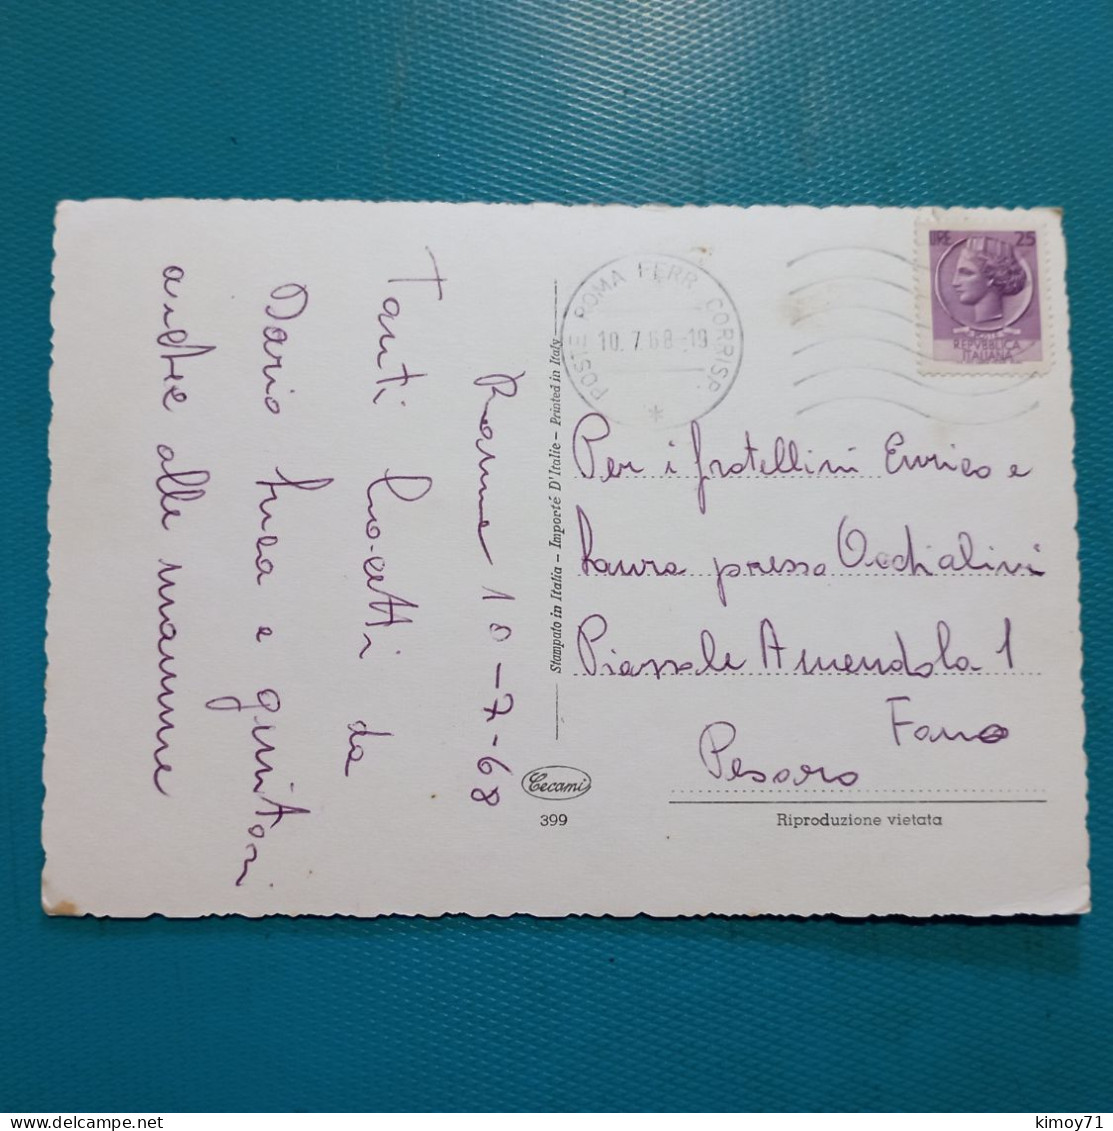 Roma 10-7-68
Tanti bacetti da
Dario Luca e genitori
anche alle mamme
Stampato in Italia - Importé D'Italie - Printed in Italy
Cecami
399
POSTE ROMA FERR. CORRISP.
10.7.68.-19
*
LIRE 25
POSTE
REPUBBLICA
ITALIANA
Per i fratellini Enrico e
Laura presso Occhialini
Piazzale Amendola 1
Fano
Pesaro
Riproduzione vietata
kimoy71